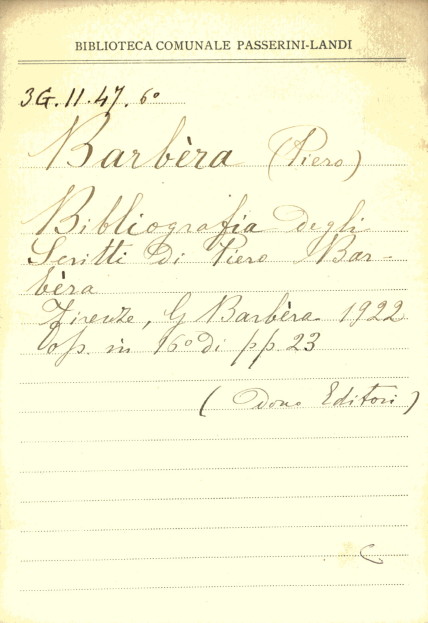 BIBLIOTECA COMUNALE PASSERINI-LANDI
3G.11.47.6°
Barbèra (Piero)
Bibliografia degli
Scritti di Piero Bar-
bèra
Firenze, G Barbèra 1922
op. in 16° di pp. 23
(Dono Editori)